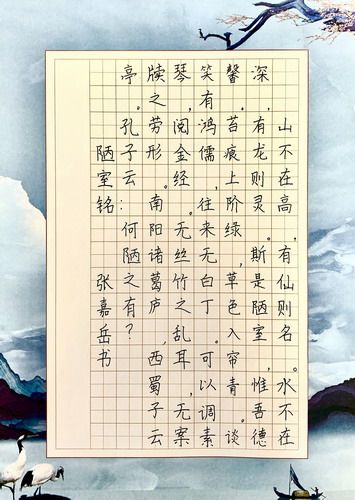 山不在高，有仙则名。水不在
深，有龙则灵。斯是陋室，惟吾德
馨。苔痕上阶绿，草色入帘青。谈
笑有鸿儒，往来无白丁。可以调素
琴，阅金经。无丝竹之乱耳，无案
牍之劳形。南阳诸葛庐，西蜀子云
亭。孔子云：何陋之有？
陋室铭 张嘉岳书